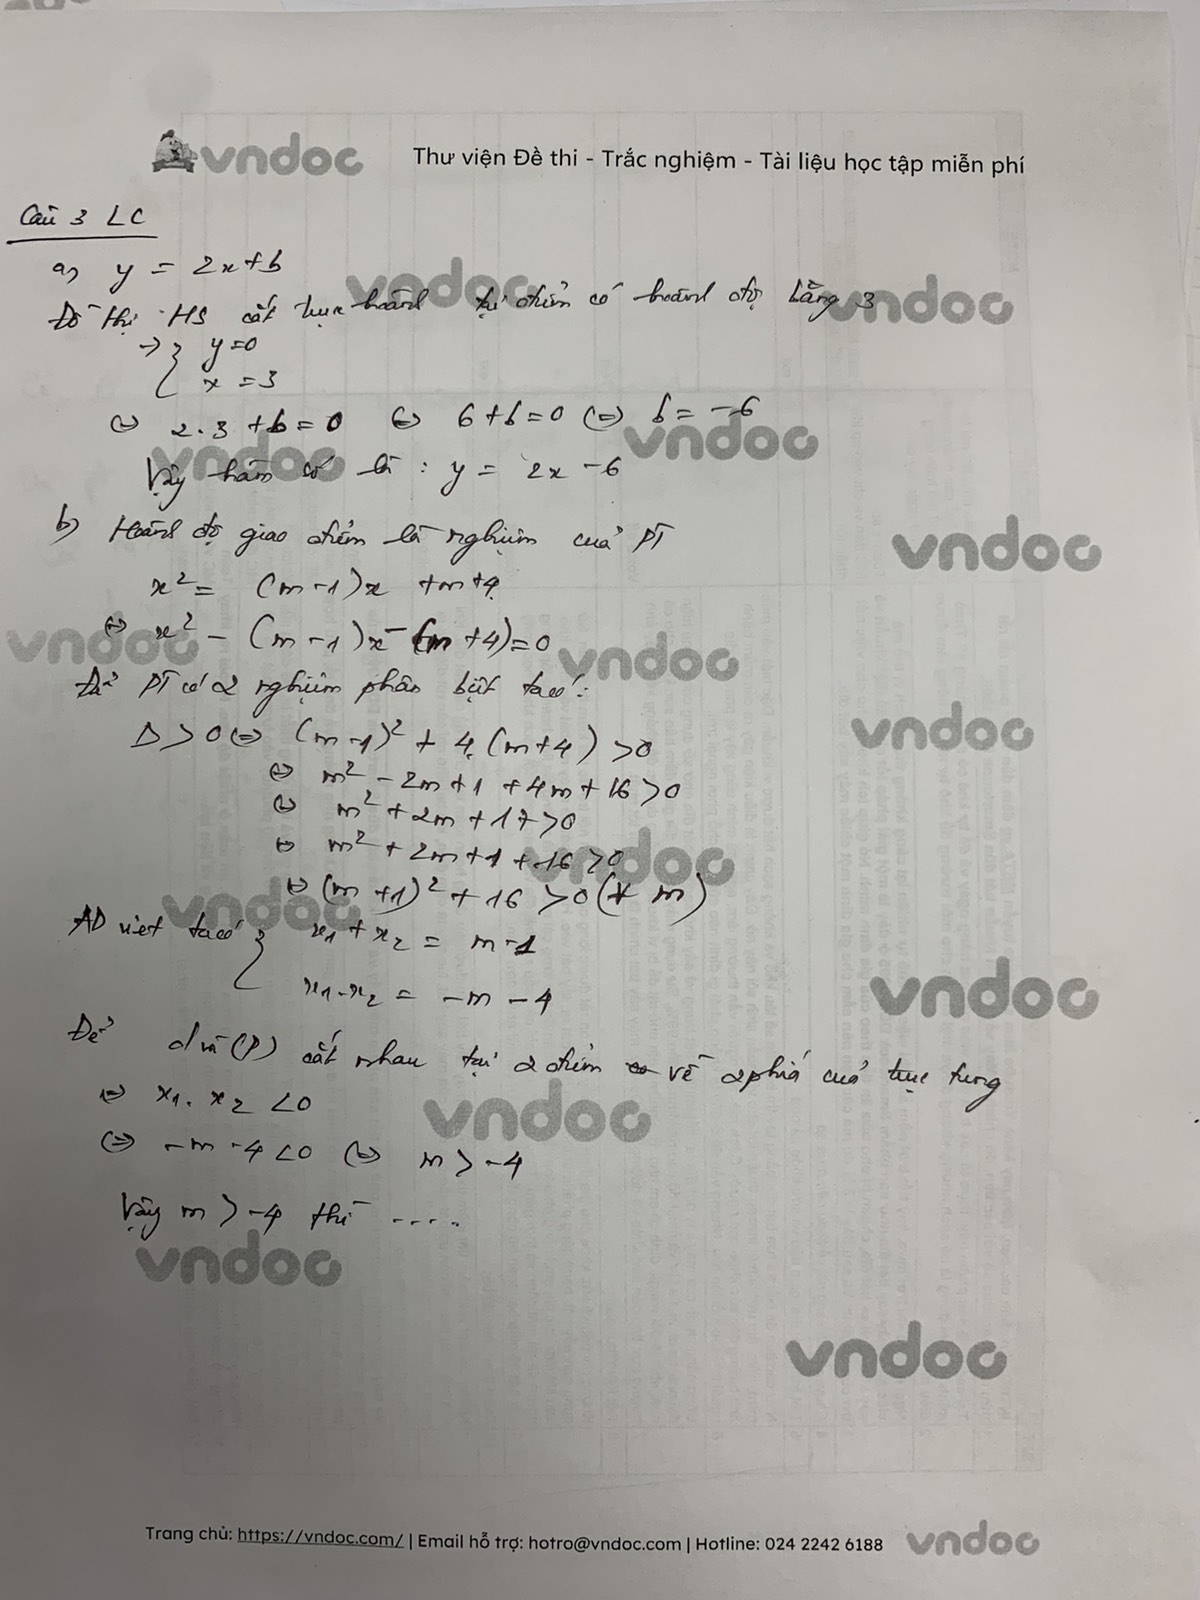 vndoc Thư viện Đề thi - Trắc nghiệm - Tài liệu học tập miễn phí
Câu 3 LC
a, y = 2x+b
Đồ thị HS cắt trục hoành tại điểm có hoành độ bằng 3
→ { y=0
x = 3
⇔ 2.3 + b = 0 ⇔ 6+b=0 ⇔ b = -6
Vậy hàm số là : y = 2x - 6
b, Hoành độ giao điểm là nghiệm của PT
x² = (m-1)x + m+4
⇔ x² - (m-1)x - (m+4)=0
Để PT có 2 nghiệm phân biệt ta có:
Δ > 0 ⇔ (m-1)² + 4.(m+4) > 0
⇔ m² - 2m+1 + 4m + 16 > 0
⇔ m² + 2m + 17 > 0
⇔ m² + 2m+1 + 16 > 0
⇔ (m+1)² + 16 > 0 (∀ m)
AD viet ta có { x₁ + x₂ = m-1
x₁.x₂ = -m - 4
Để d và (P) cắt nhau tại 2 điểm về 2 phía của trục tung
⇔ x₁.x₂ < 0
⇔ -m - 4 < 0 ⇔ m > -4
Vậy m > -4 thì ....
vndoc
vndoc
vndoc
vndoc
vndoc
vndoc
vndoc
vndoc
vndoc
vndoc
vndoc
vndoc
vndoc
vndoc
Trang chủ: https://vndoc.com/ | Email hỗ trợ: hotro@vndoc.com | Hotline: 024 2242 6188 vndoc